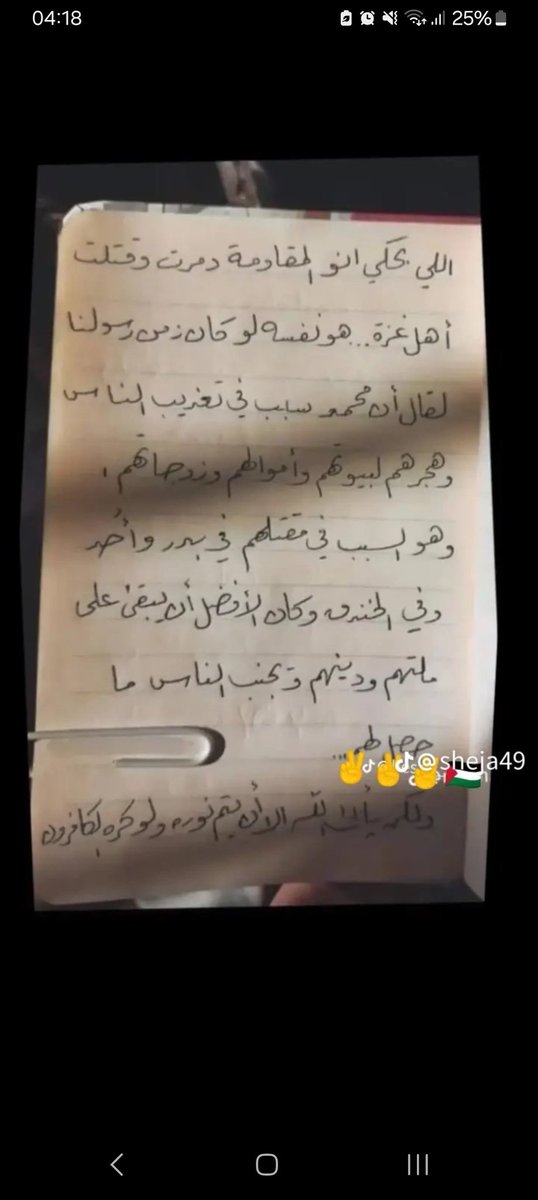 04:18
25%
اللي بحكي انو المقاومة دمرت وقتلت
أهل غزة... هو نفسه لو كان زمن رسولنا
لقال أن محمد سبب في تعذيب الناس
وهجرهم لبيوتهم وأموالهم وزوجاتهم ،
وهو السبب في مقتلهم في بدر وأُحد
وفي الخندق وكان الأفضل أن يبقى على
ملتهم ودينهم وتجنب الناس ما
حصل لهم...
@sheja49
ولكن يأبى الله الا أن يتم نوره ولو كره الكافرون